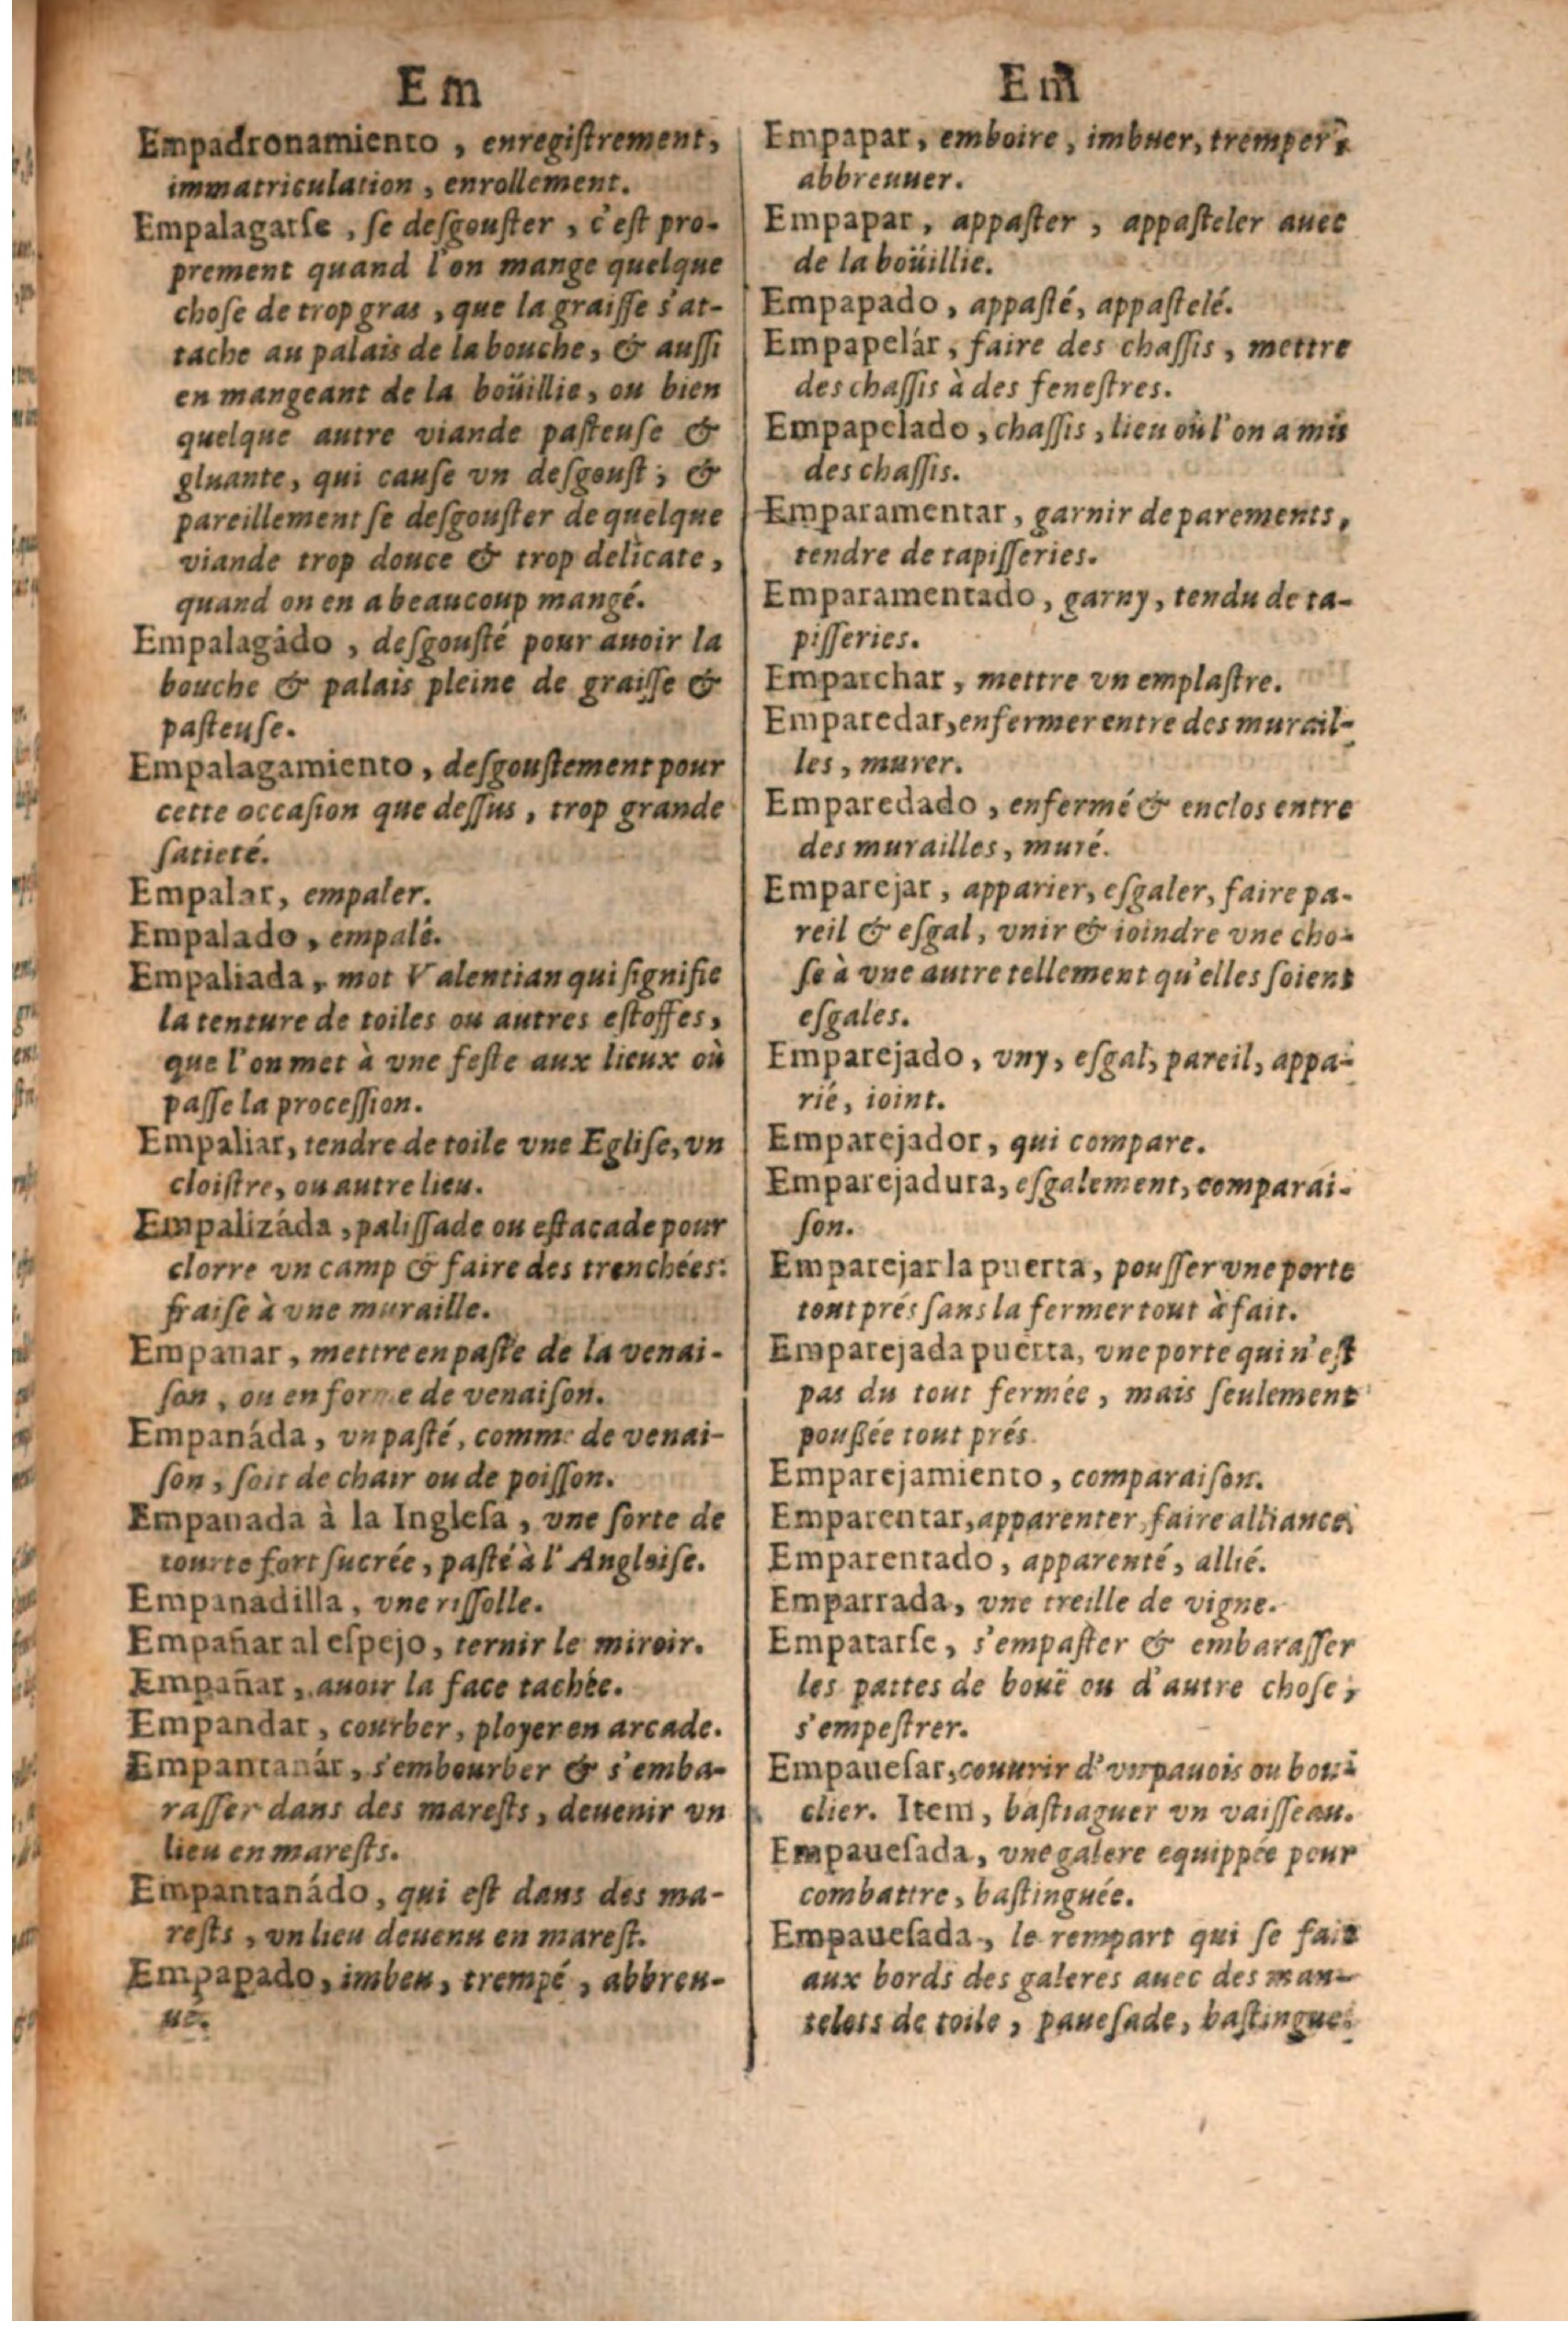 Em
Empadronamiento, enregiſtrement,
immatriculation, enrollement.
Empalagarſe, ſe deſgouſter, c'eſt pro-
prement quand l'on mange quelque
choſe de trop gras, que la graiſſe s'at-
tache au palais de la bouche, & auſſi
en mangeant de la boüillie, ou bien
quelque autre viande paſteuſe &
gluante, qui cauſe vn deſgouſt; &
pareillement ſe deſgouſter de quelque
viande trop douce & trop delicate,
quand on en a beaucoup mangé.
Empalagádo, deſgouſté pour auoir la
bouche & palais pleine de graiſſe &
paſteuſe.
Empalagamiento, deſgouſtement pour
cette occaſion que deſſus, trop grande
ſatieté.
Empalar, empaler.
Empalado, empalé.
Empaliada, mot Valentian qui ſignifie
la tenture de toiles ou autres eſtoffes,
que l'on met à vne feſte aux lieux où
paſſe la proceſſion.
Empaliar, tendre de toile vne Egliſe, vn
cloiſtre, ou autre lieu.
Empalizáda, paliſſade ou eſtacade pour
clorre vn camp & faire des trenchées:
fraiſe à vne muraille.
Empanar, mettre en paſte de la venai-
ſon, ou en forme de venaiſon.
Empanáda, vn paſté, comme de venai-
ſon, ſoit de chair ou de poiſſon.
Empanada à la Ingleſa, vne ſorte de
tourte fort ſucrée, paſté à l'Angloiſe.
Empanadilla, vne riſſolle.
Empañar al eſpejo, ternir le miroir.
Empañar, auoir la face tachée.
Empandar, courber, ployer en arcade.
Empantanár, s'embourber & s'emba-
raſſer dans des mareſts, deuenir vn
lieu en mareſts.
Empantanádo, qui eſt dans des ma-
reſts, vn lieu deuenu en mareſt.
Empapado, imbeu, trempé, abbreu-
ué.
Em
Empapar, emboire, imbuer, tremper,
abbreuuer.
Empapar, appaſter, appaſteler auec
de la boüillie.
Empapado, appaſté, appaſtelé.
Empapelár, faire des chaſſis, mettre
des chaſſis à des feneſtres.
Empapelado, chaſſis, lieu où l'on a mis
des chaſſis.
Emparamentar, garnir de parements,
tendre de tapiſſeries.
Emparamentado, garny, tendu de ta-
piſſeries.
Emparchar, mettre vn emplaſtre.
Emparedar, enfermer entre des murail-
les, murer.
Emparedado, enfermé & enclos entre
des murailles, muré.
Emparejar, apparier, eſgaler, faire pa-
reil & eſgal, vnir & ioindre vne cho-
ſe à vne autre tellement qu'elles ſoient
eſgales.
Emparejado, vny, eſgal, pareil, appa-
rié, ioint.
Emparejador, qui compare.
Emparejadura, eſgalement, comparai-
ſon.
Emparejar la puerta, pouſſer vne porte
tout prés ſans la fermer tout à fait.
Emparejada puerta, vne porte qui n'eſt
pas du tout fermée, mais ſeulement
pouſſée tout prés.
Emparejamiento, comparaiſon.
Emparentar, apparenter, faire alliance.
Emparentado, apparenté, allié.
Emparrada, vne treille de vigne.
Empatarſe, s'empaſter & embaraſſer
les pattes de bouë ou d'autre choſe,
s'empeſtrer.
Empaueſar, couurir d'vn pauois ou bou-
clier. Item, baſtiaguer vn vaiſſeau.
Empaueſada, vne galere equippée pour
combattre, baſtinguée.
Empaueſada, le rempart qui ſe fait
aux bords des galeres auec des man-
telets de toile, paueſade, baſtingue.